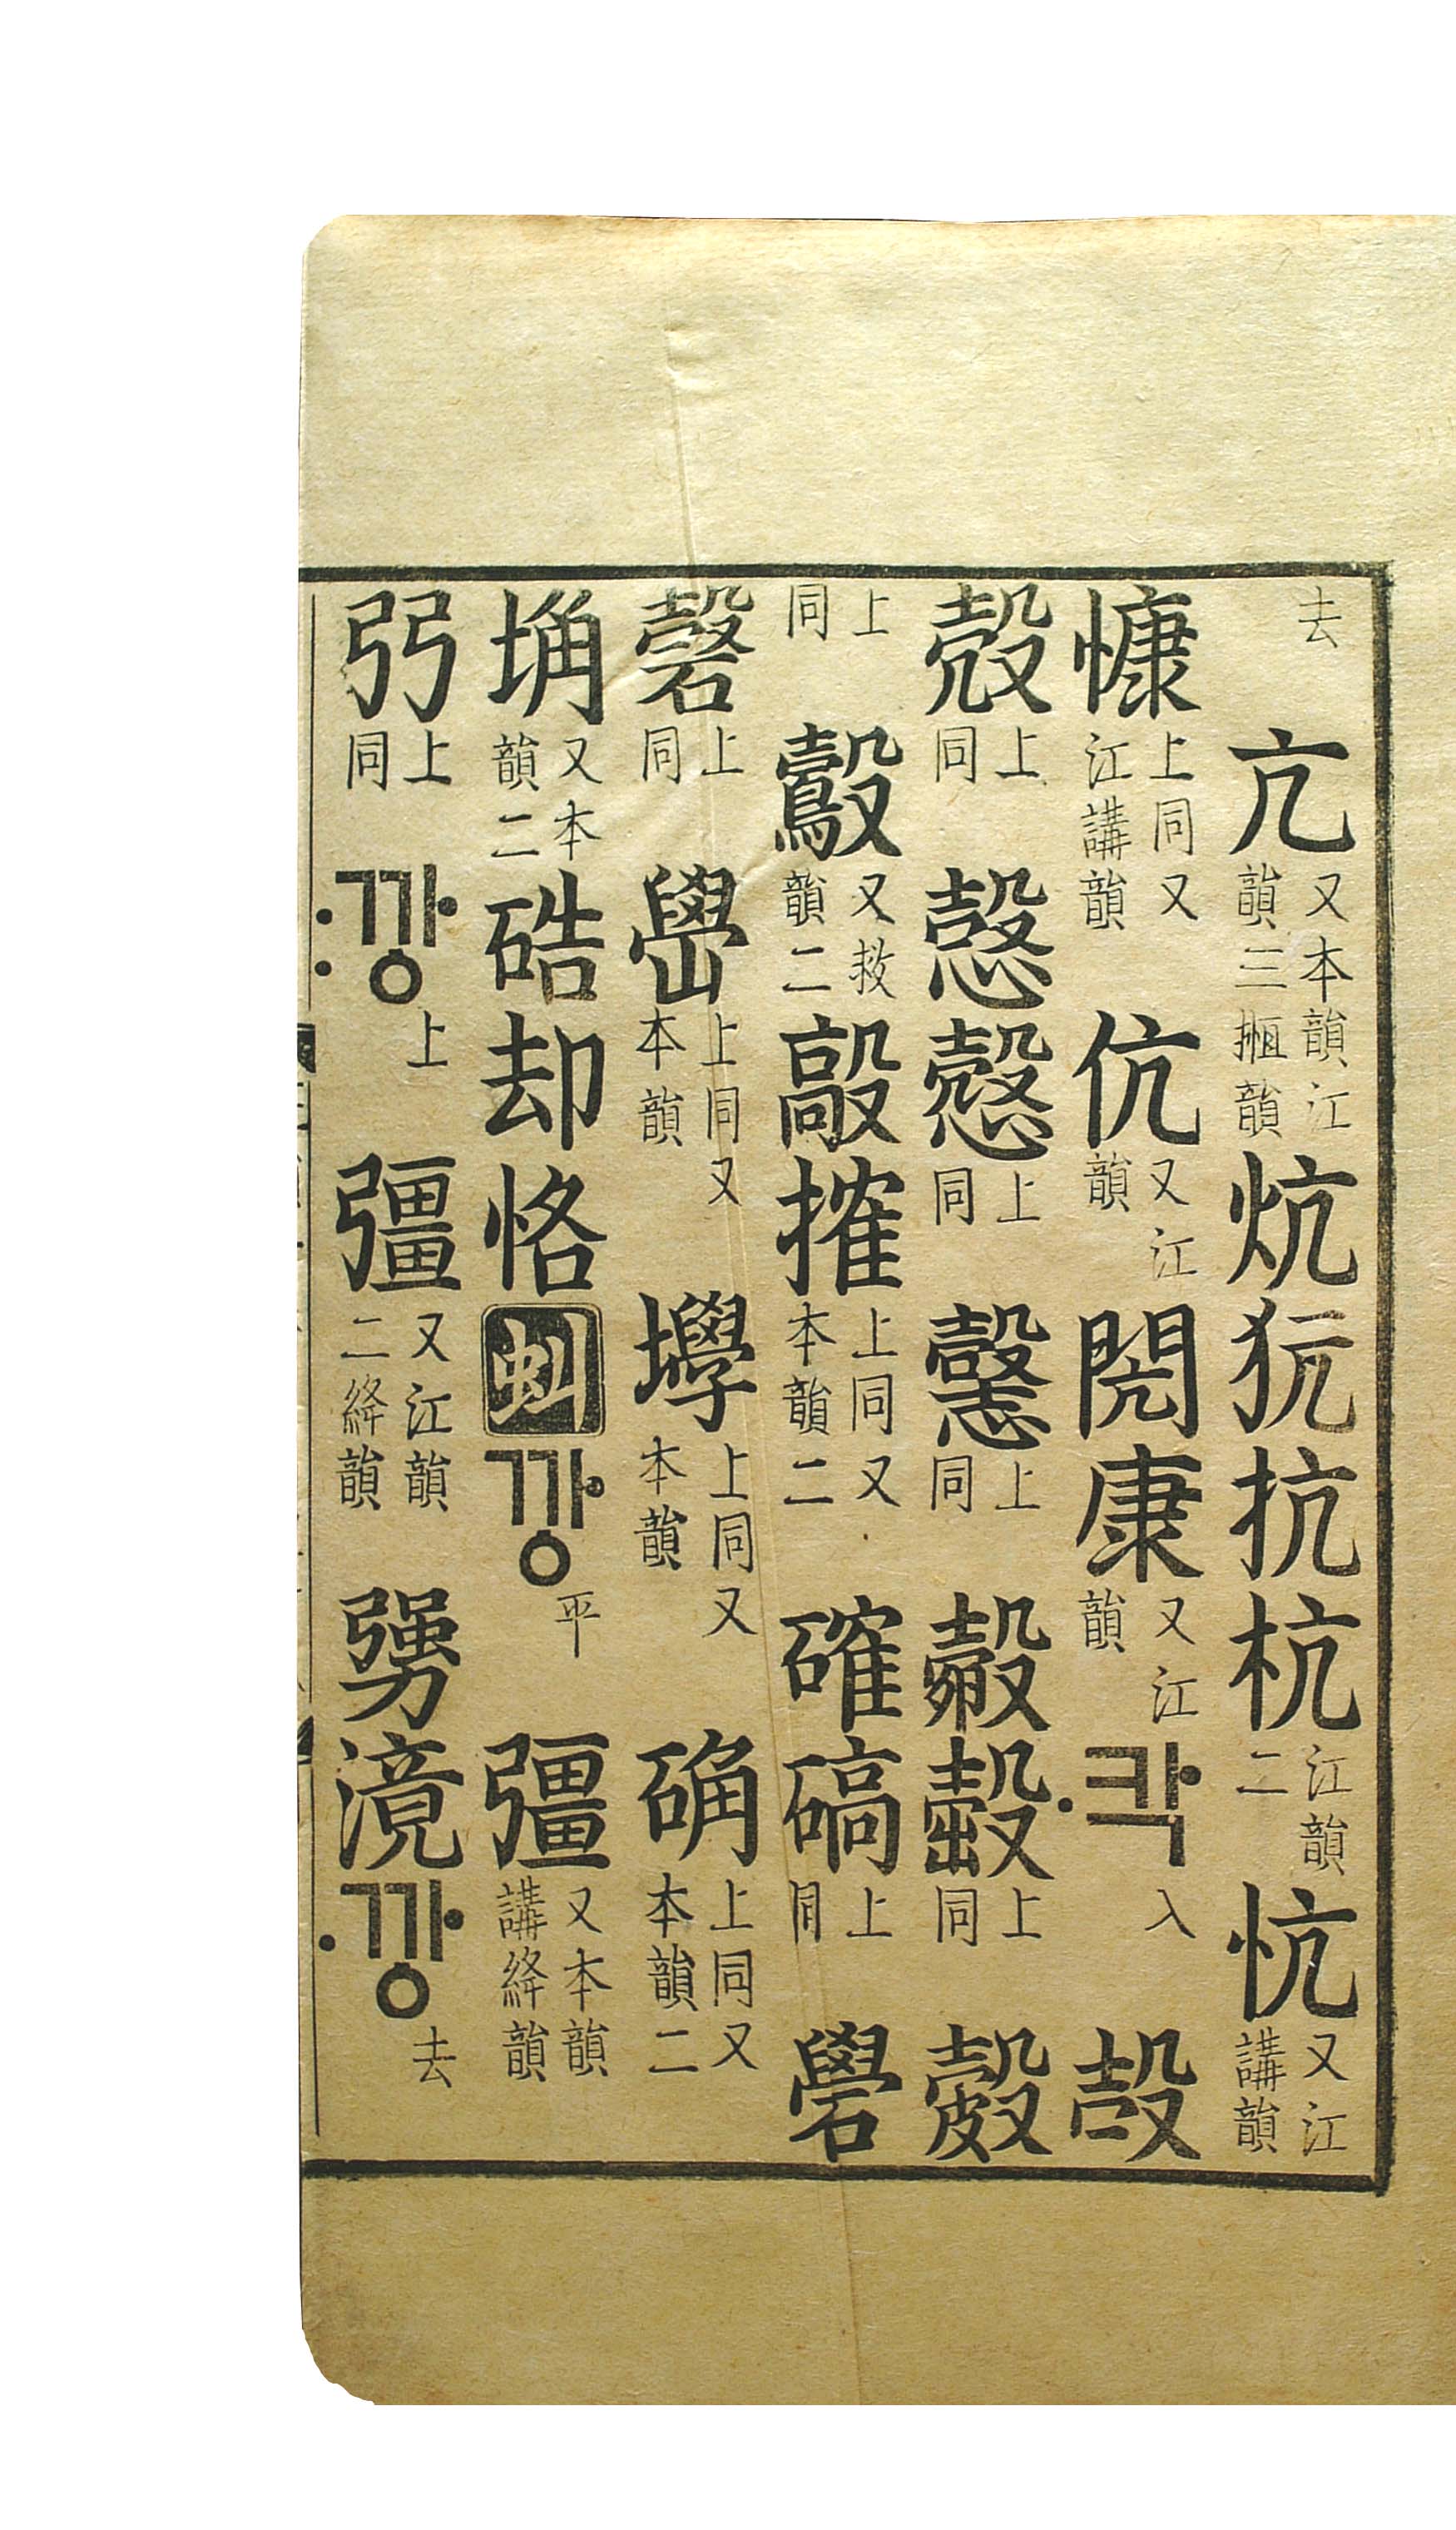 去亢又本韻江韻三擓韻炕犺抗杭江韻二忼又江講韻
慷上同又江講韻伉又江韻閌康又江韻칵入㱿
殼上同慤愨上同𢡱上同縠㲉上同㱿
上同鷇又救韻二敲搉上同又本韻二確碻上同礐
磬上同嶨上同又本韻壆上同又本韻确上同又本韻二
埆又本韻二硞却恪虯깡平彊又本韻講絳韻
弜上同깡上彊又江韻二絳韻勥滰깡去